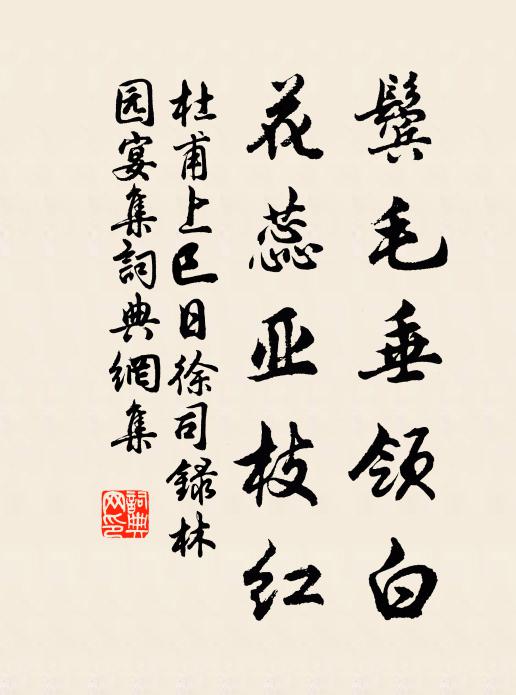 鬓毛垂领白
花蕊亚枝红
杜甫上巳日徐司録林
园宴集詞典網集
詞典
网印